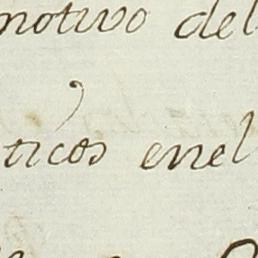 motivo del
ticos enel